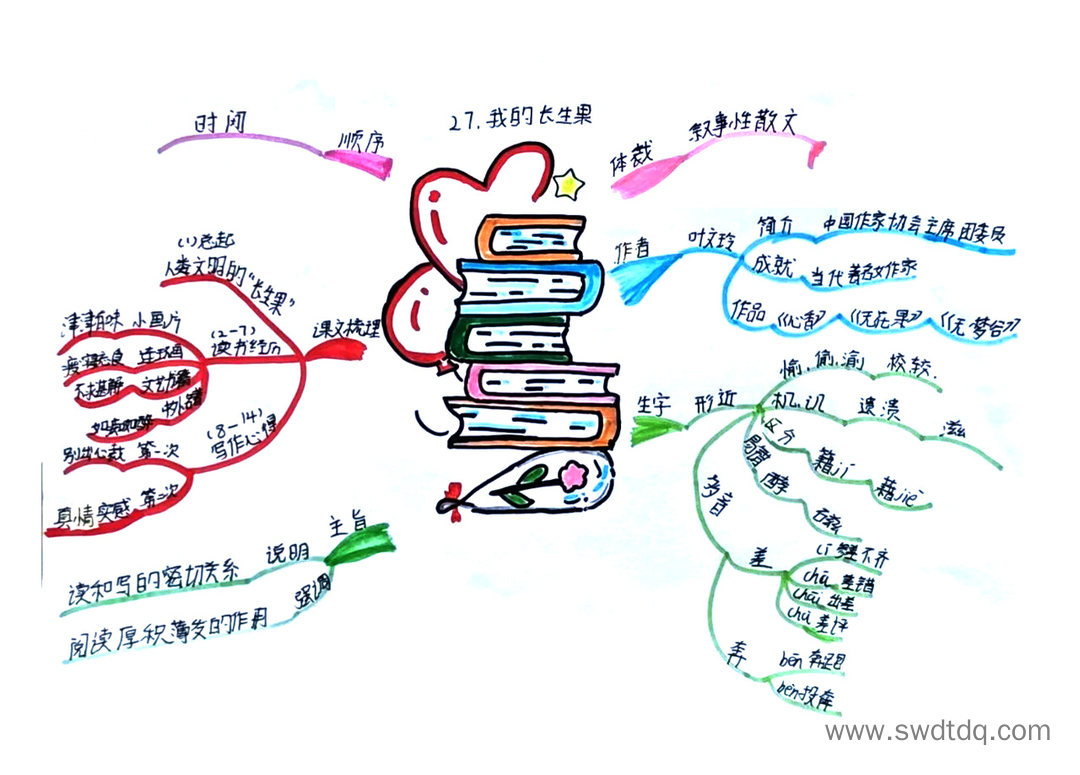 27.我的长生果
体裁
叙事性散文
作者
叶文玲
简介
中国作家协会主席团委员
成就
当代著名女作家
作品
《心香》
《无花果》
《无梦谷》
生字
形近
愉、偷、渝
校较
机、讥
遗溃
滋
区分
籍jí
藉jiè
易错
酵
多音
差
cī 参差不齐
chā 差错
chāi 出差
chà 差评
奔
bēn
bèn 投奔
顺序
时间
课文梳理
(1)总起
人类文明的“长生果”
(2-7)
读书经历
津津有味 小画片
连环画
文艺书籍
(8-14)
写作心得
别出心裁 第一次
真情实感 第二次
主旨
说明
读和写的密切关系
强调
阅读厚积薄发的作用
www.swdtdq.com